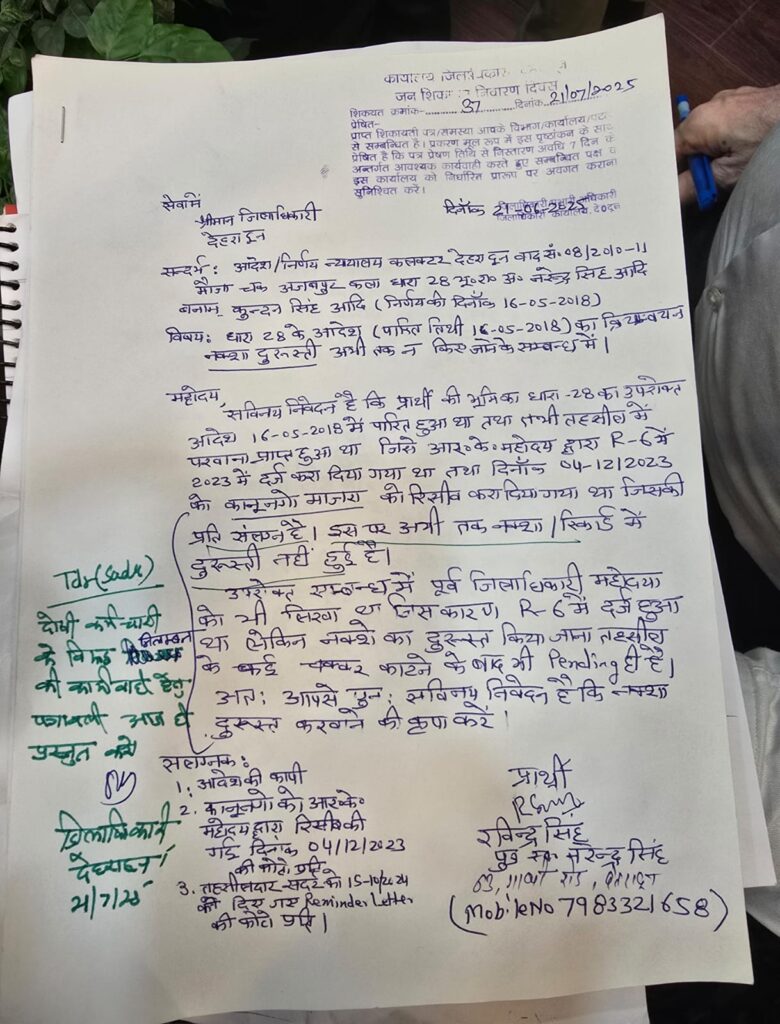 कार्यालय जिलाधिकारी
जन शिकायत निवारण दिवस
शिकायत क्रमांक- 37 दिनांक 21/07/2025
प्रेषित-
प्राप्त शिकायती पत्र/समस्या आपके विभाग/कार्यालय/पटल
से सम्बन्धित है। प्रकरण मूल रूप में इस पृष्ठांकन के साथ
प्रेषित है कि पत्र प्रेषण तिथि से निस्तारण अवधि 7 दिन के
अन्तर्गत आवश्यक कार्यवाही करते हुए सम्बन्धित पक्ष व
इस कार्यालय को निर्धारित प्रारूप पर अवगत कराना
सुनिश्चित करें।
जिलाधिकारी कार्यालय, दे0दून
सेवा में
दिनाँक 21-
श्रीमान जिलाधिकारी
देहरादून
सन्दर्भ: आदेश/निर्णय न्यायालय कलक्टर देहरादून वाद सं. 08/2010-11
मौजा चक अजबपुर कला धारा 28 भू.रा.अ. नरेन्द्र सिंह आदि
बनाम कुन्दन सिंह आदि (निर्णय की दिनाँक 16-05-2018)
विषय: धारा 28 के आदेश (पारित तिथी 16-05-2018) का क्रियान्वयन
नक्शा दुरूस्ती अभी तक न किए जाने के सम्बन्ध में।
महोदय,
सविनय निवेदन है कि प्रार्थी की भूमिका धारा-28 का उपरोक्त
आदेश 16-05-2018 में पारित हुआ था तथा तभी तहसील में
परवाना प्राप्त हुआ था जिसे आर.के. महोदय द्वारा R-6 में
2023 में दर्ज करा दिया गया था तथा दिनाँक 04-12/2023
को कानूनगो माजरा को रिसीव करा दिया गया था जिसकी
प्रति संलग्न है। इस पर अभी तक नक्शा/रिकार्ड में
दुरूस्ती नहीं हुई है।
उपरोक्त सम्बन्ध में पूर्व जिलाधिकारी महोदया
को भी लिखा था जिस कारण R-6 में दर्ज हुआ
था लेकिन नक्शे का दुरूस्त किया जाना तहसील
के कई चक्कर काटने के बाद भी Pending ही है।
अत: आपसे पुन: सविनय निवेदन है कि नक्शा
दुरूस्त करवाने की कृपा करें।
Tdr (Sadar)
दोषी कर्मचारी
के विरूद्ध निलम्बन
की कार्यवाही हेतु
पत्रावली आज ही
प्रस्तुत करें
जिलाधिकारी
देहरादून।
21/7/25
सलंग्नक:
1. आदेश की कापी
2. कानूनगो को आर.के.
महोदय द्वारा रिसीव की
गई दिनांक 04/12/2023
की फोटो प्रति
3. तहसीलदार-सदर को 15-10/2024
को दिए गए Reminder Letter
की फोटो प्रति।
प्रार्थी
रविन्द्र सिंह
पुत्र स्व. नरेन्द्र सिंह
(Mobile No 7983321658)